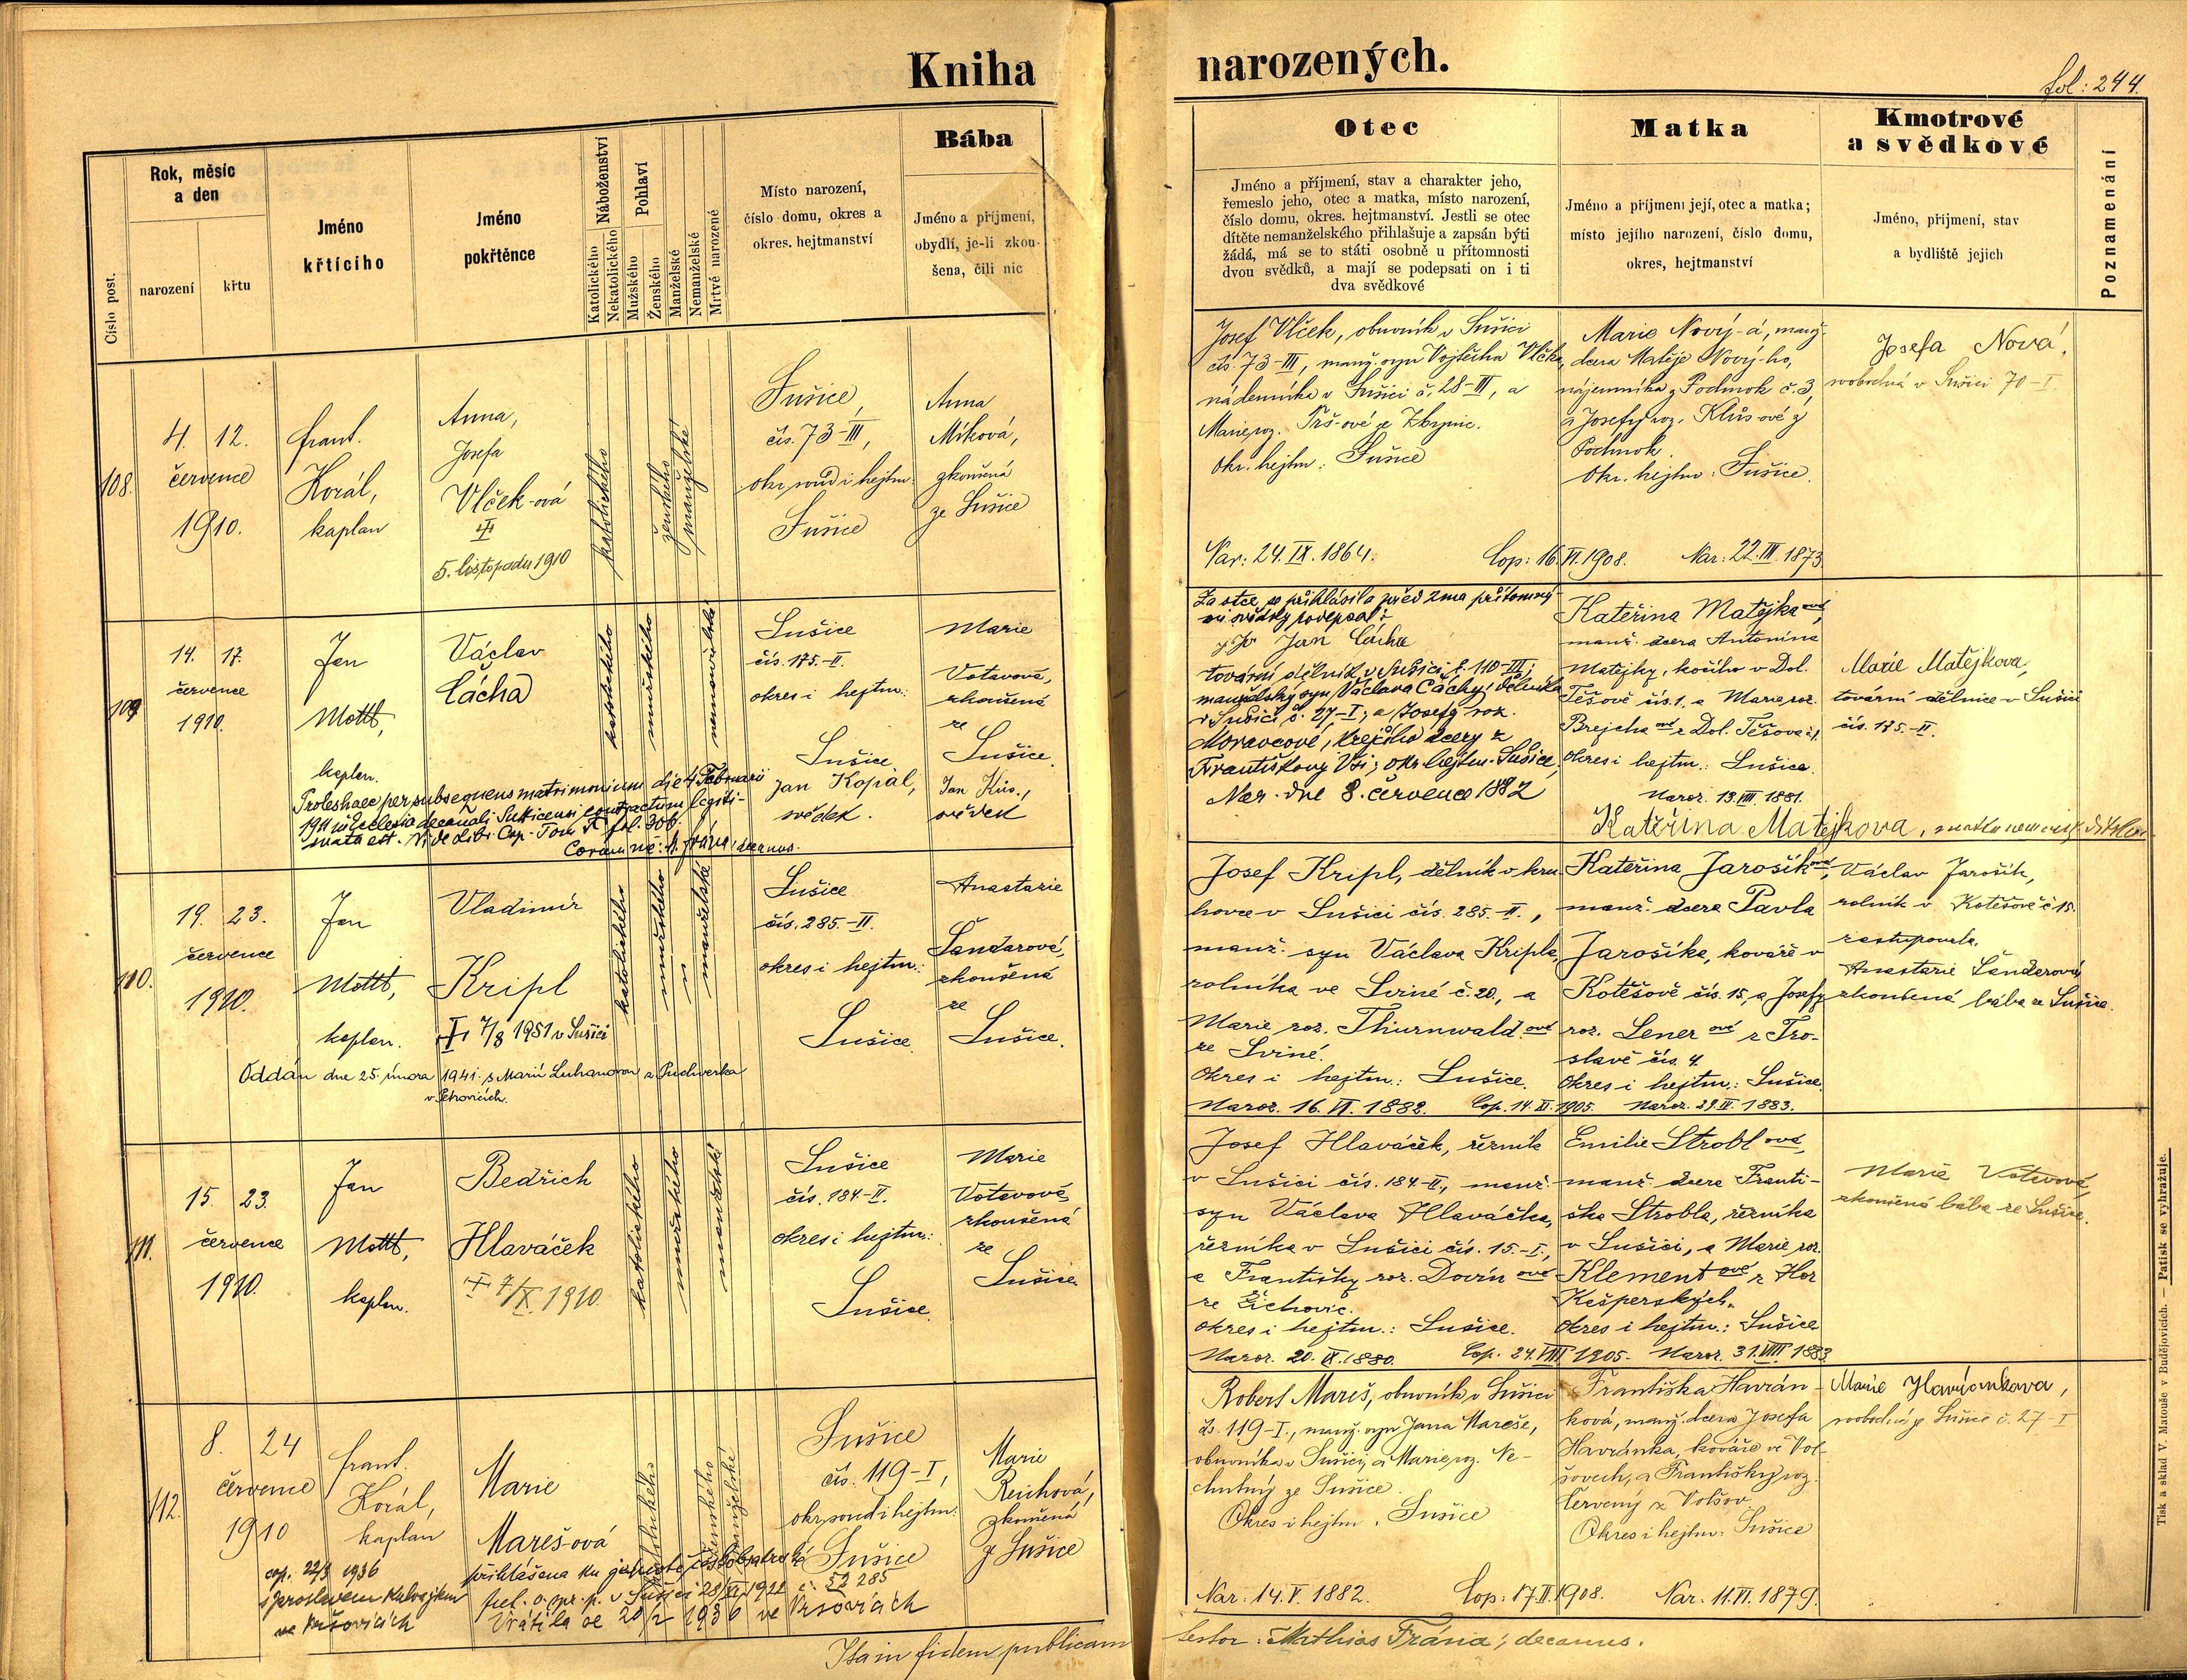 Kniha
narozených.
fol: 244.
Číslo post.
Rok, měsíc
a den
narození
křtu
Jméno
křtícího
Jméno
pokřtěnce
Náboženství
Katolického
Nekatolického
Pohlaví
Mužského
Ženského
Manželské
Nemanželské
Mrtvé narozené
Místo narození,
číslo domu, okres a
okres. hejtmanství
Bába
Jméno a příjmení,
obydlí, je-li zkou-
šena, čili nic
Otec
Jméno a příjmení, stav a charakter jeho,
řemeslo jeho, otec a matka, místo narození,
číslo domu, okres. hejtmanství. Jestli se otec
dítěte nemanželského přihlašuje a zapsán býti
žádá, má se to státi osobně u přítomnosti
dvou svědků, a mají se podepsati on i ti
dva svědkové
Matka
Jméno a příjmení její, otec a matka;
místo jejího narození, číslo domu,
okres, hejtmanství
Kmotrové
a svědkové
Jméno, příjmení, stav
a bydliště jejich
Poznamenání
108.
4. 12.
července
1910.
frant.
Korál,
kaplan
Anna,
Josefa
Vlček-ová
5. listopadu 1910
katolického
ženského
manželské
Sušice,
čís. 73-III,
okr. soud i hejtm.
Sušice
Anna
Miková,
zkoušená
ze Sušice
Josef Vlček, obuvník v Sušici
čís. 73-III, manž. syn Vojtěcha Vlčka,
nádenníka v Sušici č. 28-III, a
Marie roz. Prš-ové ze Zbynic.
Okr. hejtm: Sušice
Nar: 24. IX. 1864.
Cop: 16. VI. 1908.
Marie Nový-á, manž.
dcera Matěje Nový-ho,
nájemníka z Podmok č. 3,
a Josefy roz. Klůs-ové z
Podmok.
Okr. hejtm: Sušice.
Nar: 22. III. 1873.
Josefa Nová,
svobodná v Sušici 70-I.
109
14. 17.
července
1910.
Jan
Mottl,
kaplan.
Václav
Cácha
katolického
mužského
nemanželské
Sušice
čís. 175.-II.
okres i hejtm:
Sušice
Jan Kopal,
svědek.
Marie
Votavové,
zkoušená
ze
Sušice.
Jan Kůs.,
svědek
Proles haec per subsequens matrimonium die 4 Februarii
1911 in Ecclesia decanali Sutticensi contractum legiti-
mata est. Vide Libr. Cop. Tom fol. 306.
Coram me: M. Frána, decanus.
Za otce se přihlásil a před dvěma přítomný-
mi svědky podepsal:
Jan Cácha
tovární dělník v Sušici č. 110-III;
manželský syn Václava Cáchy, dělníka
v Sušici č. 27-I, a Josefy roz.
Moravcové, krejčího dcery z
Františkovy Vsi; okr. hejtm. Sušice.
Nar. dne 8. července 1882
Kateřina Matějka ová,
manž. dcera Antonína
Matějky, kočího v Dol.
Těšově čís. 1, a Marie roz.
Brejcha ové z Dol. Těšova č. 1.
Okres i hejtm.: Sušice.
Naroz. 13. VIII. 1881.
Kateřina Matějkova, matka nemanž. dítěte
Marie Matějkova,
tovární dělnice v Sušici
čís. 175.-II.
110.
19. 23.
července
1910.
Jan
Mottl,
kaplan.
Vladimír
Kripl
7/8 1951 v Sušici
Oddán dne 25. února 1941. s Marií Luhanovou z Puchverka
v Petrovicích.
katolického
mužského
manželské
Sušice
čís. 285.-II.
okres i hejtm.:
Sušice.
Anastazie
Šandarové,
zkoušená
ze
Sušice.
Josef Kripl, dělník v kru-
hovce v Sušici čís. 285.-II.,
manž. syn Václava Kripla,
rolníka ve Sviné č. 20, a
Marie roz. Thurnwald ové
ze Sviné.
Okres i hejtm: Sušice.
Naroz. 16. VI. 1882.
Cop. 14. XI. 1905.
Kateřina Jarošík ová,
manž. dcera Pavla
Jarošíka, kováře v
Kotěšově čís. 15, a Josefy
roz. Lener ové z Tro-
slavě čís. 4.
Okres i hejtm.: Sušice.
Naroz. 29. IV. 1883.
Václav Jarošík,
rolník v Kotěšově č 15.
zastupovala.
Anastazie Šanderová
zkoušená bába ze Sušice.
111.
15. 23.
července
1910.
Jan
Mottl,
kaplan.
Bedřich
Hlaváček
7/X. 1910.
katolického
mužského
manželské
Sušice
čís. 184-II.
okres i hejtm:
Sušice.
Marie
Votavové,
zkoušená
ze
Sušice.
Josef Hlaváček, řezník
v Sušici čís. 184-II., manž.
syn Václava Hlaváčka,
řezníka v Sušici čís. 15.-I.,
a Františky roz. Dovín ové
ze Žichovic.
Okres i hejtm.: Sušice.
Naroz. 20. IX. 1880.
Cop. 24. VIII 1905.
Emilie Strobl ová,
manž. dcera Franti-
ška Strobla, řezníka
v Sušici, a Marie roz.
Klement ové z Hor
Kešperských.
Okres i hejtm.: Sušice
Naroz. 31. VIII. 1883
Marie Votavové,
zkoušená bába ze Sušice.
112.
8. 24
července
1910
frant.
Korál,
kaplan
Marie
Mareš-ová
katolického
ženského
manželské
Sušice
čís. 119-I,
okr. soud i hejtm:
Sušice
Marie
Reichová,
zkoušená
z Sušice
cop. 22/3 1936
s Jaroslavem
ve Vršovicích
přihlášena ku
pol. o. spr. p. v Sušici 28/XI 1921 č. 52 285
Vrátila se 20/2 1936 ve Vršovicích
Robert Mareš, obuvník v Sušici
čs. 119-I., manž. syn Jana Mareše,
obuvníka v Sušici, a Marie roz. Ne-
chutný ze Sušice.
Okres i hejtm. Sušice
Nar: 14. V. 1882.
Cop: 17. II. 1908.
Františka Havrán-
ková, manž. dcera Josefa
Havránka, kováře ve Vol-
šovech, a Františky roz.
Červený z Volšov.
Okres i hejtm: Sušice
Nar. 11. VI. 1879.
Marie
svobodná z Sušice č. 27-I
Ita in fidem publicam
testor: Mathias Frána, decanus.
Tisk a sklad V. Matouše v Budějovicích. — Patisk se vyhražuje.